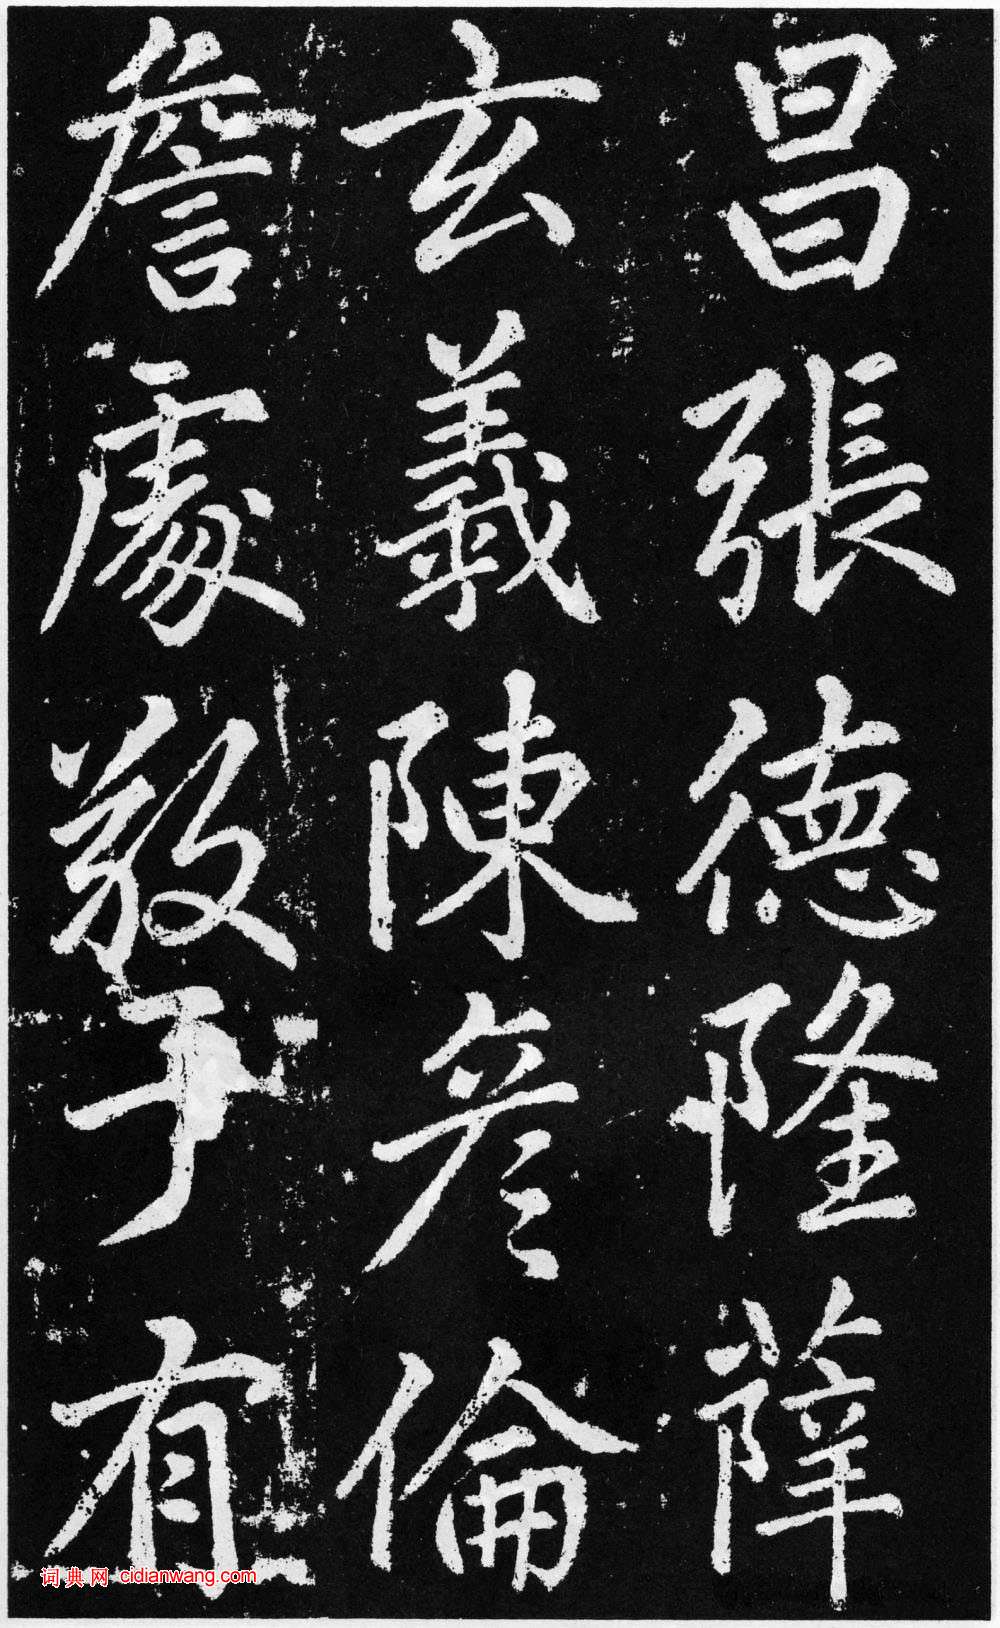 昌張德隆薩
玄義陳彦倫
詹處敬于有
词典网 cidianwang.com